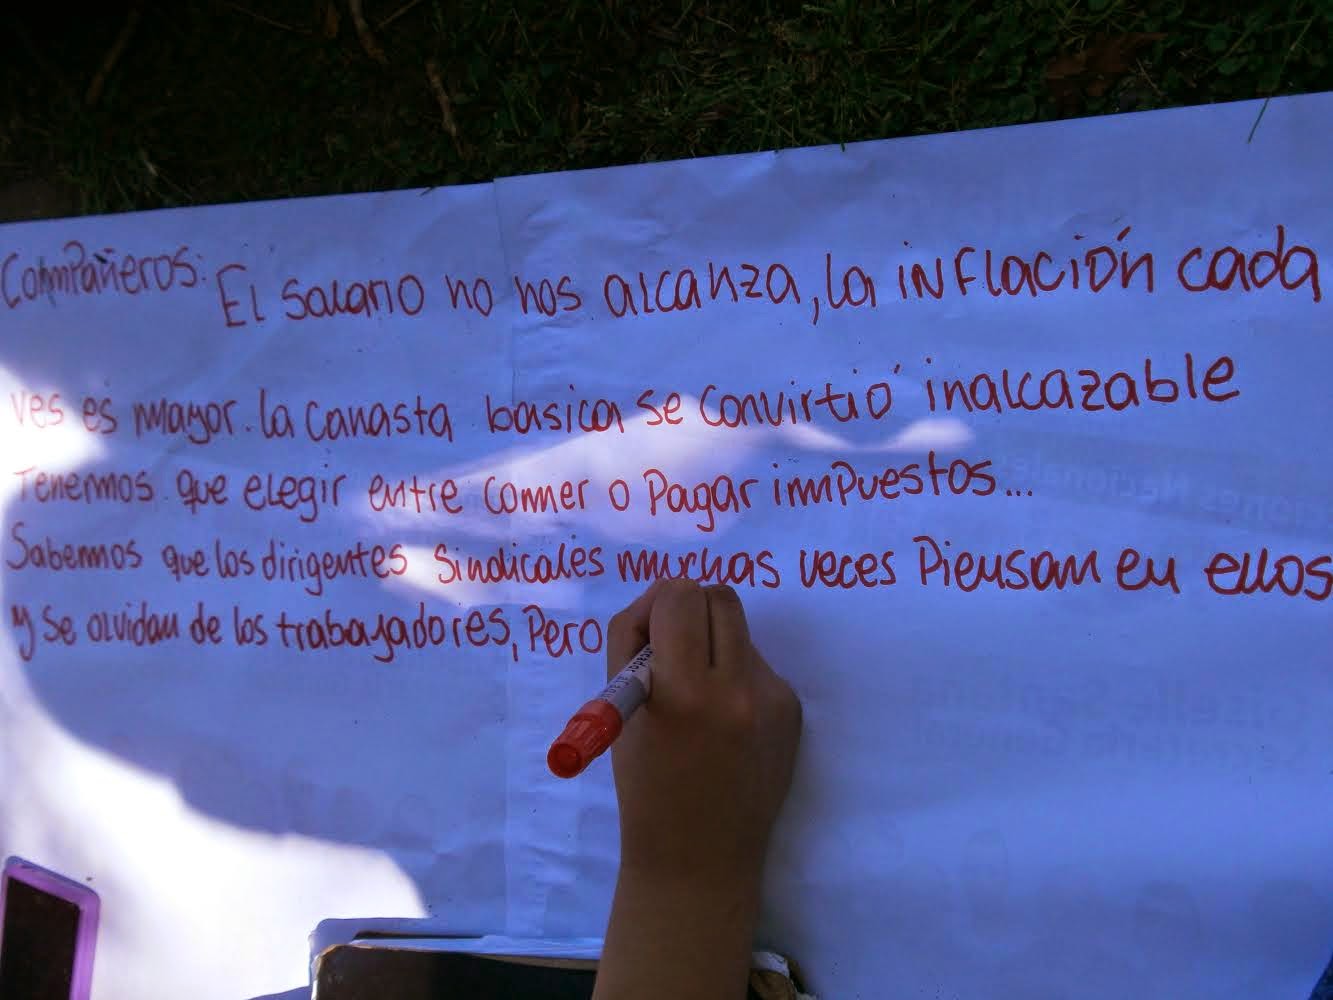 Compañeros: El salario no nos alcanza, la inflación cada
ves es mayor. la canasta basica se convirtió inalcazable
Tenemos que elegir entre comer o pagar impuestos...
Sabemos que los dirigentes sindicales muchas veces piensan en ellos
y se olvidan de los trabajadores, pero